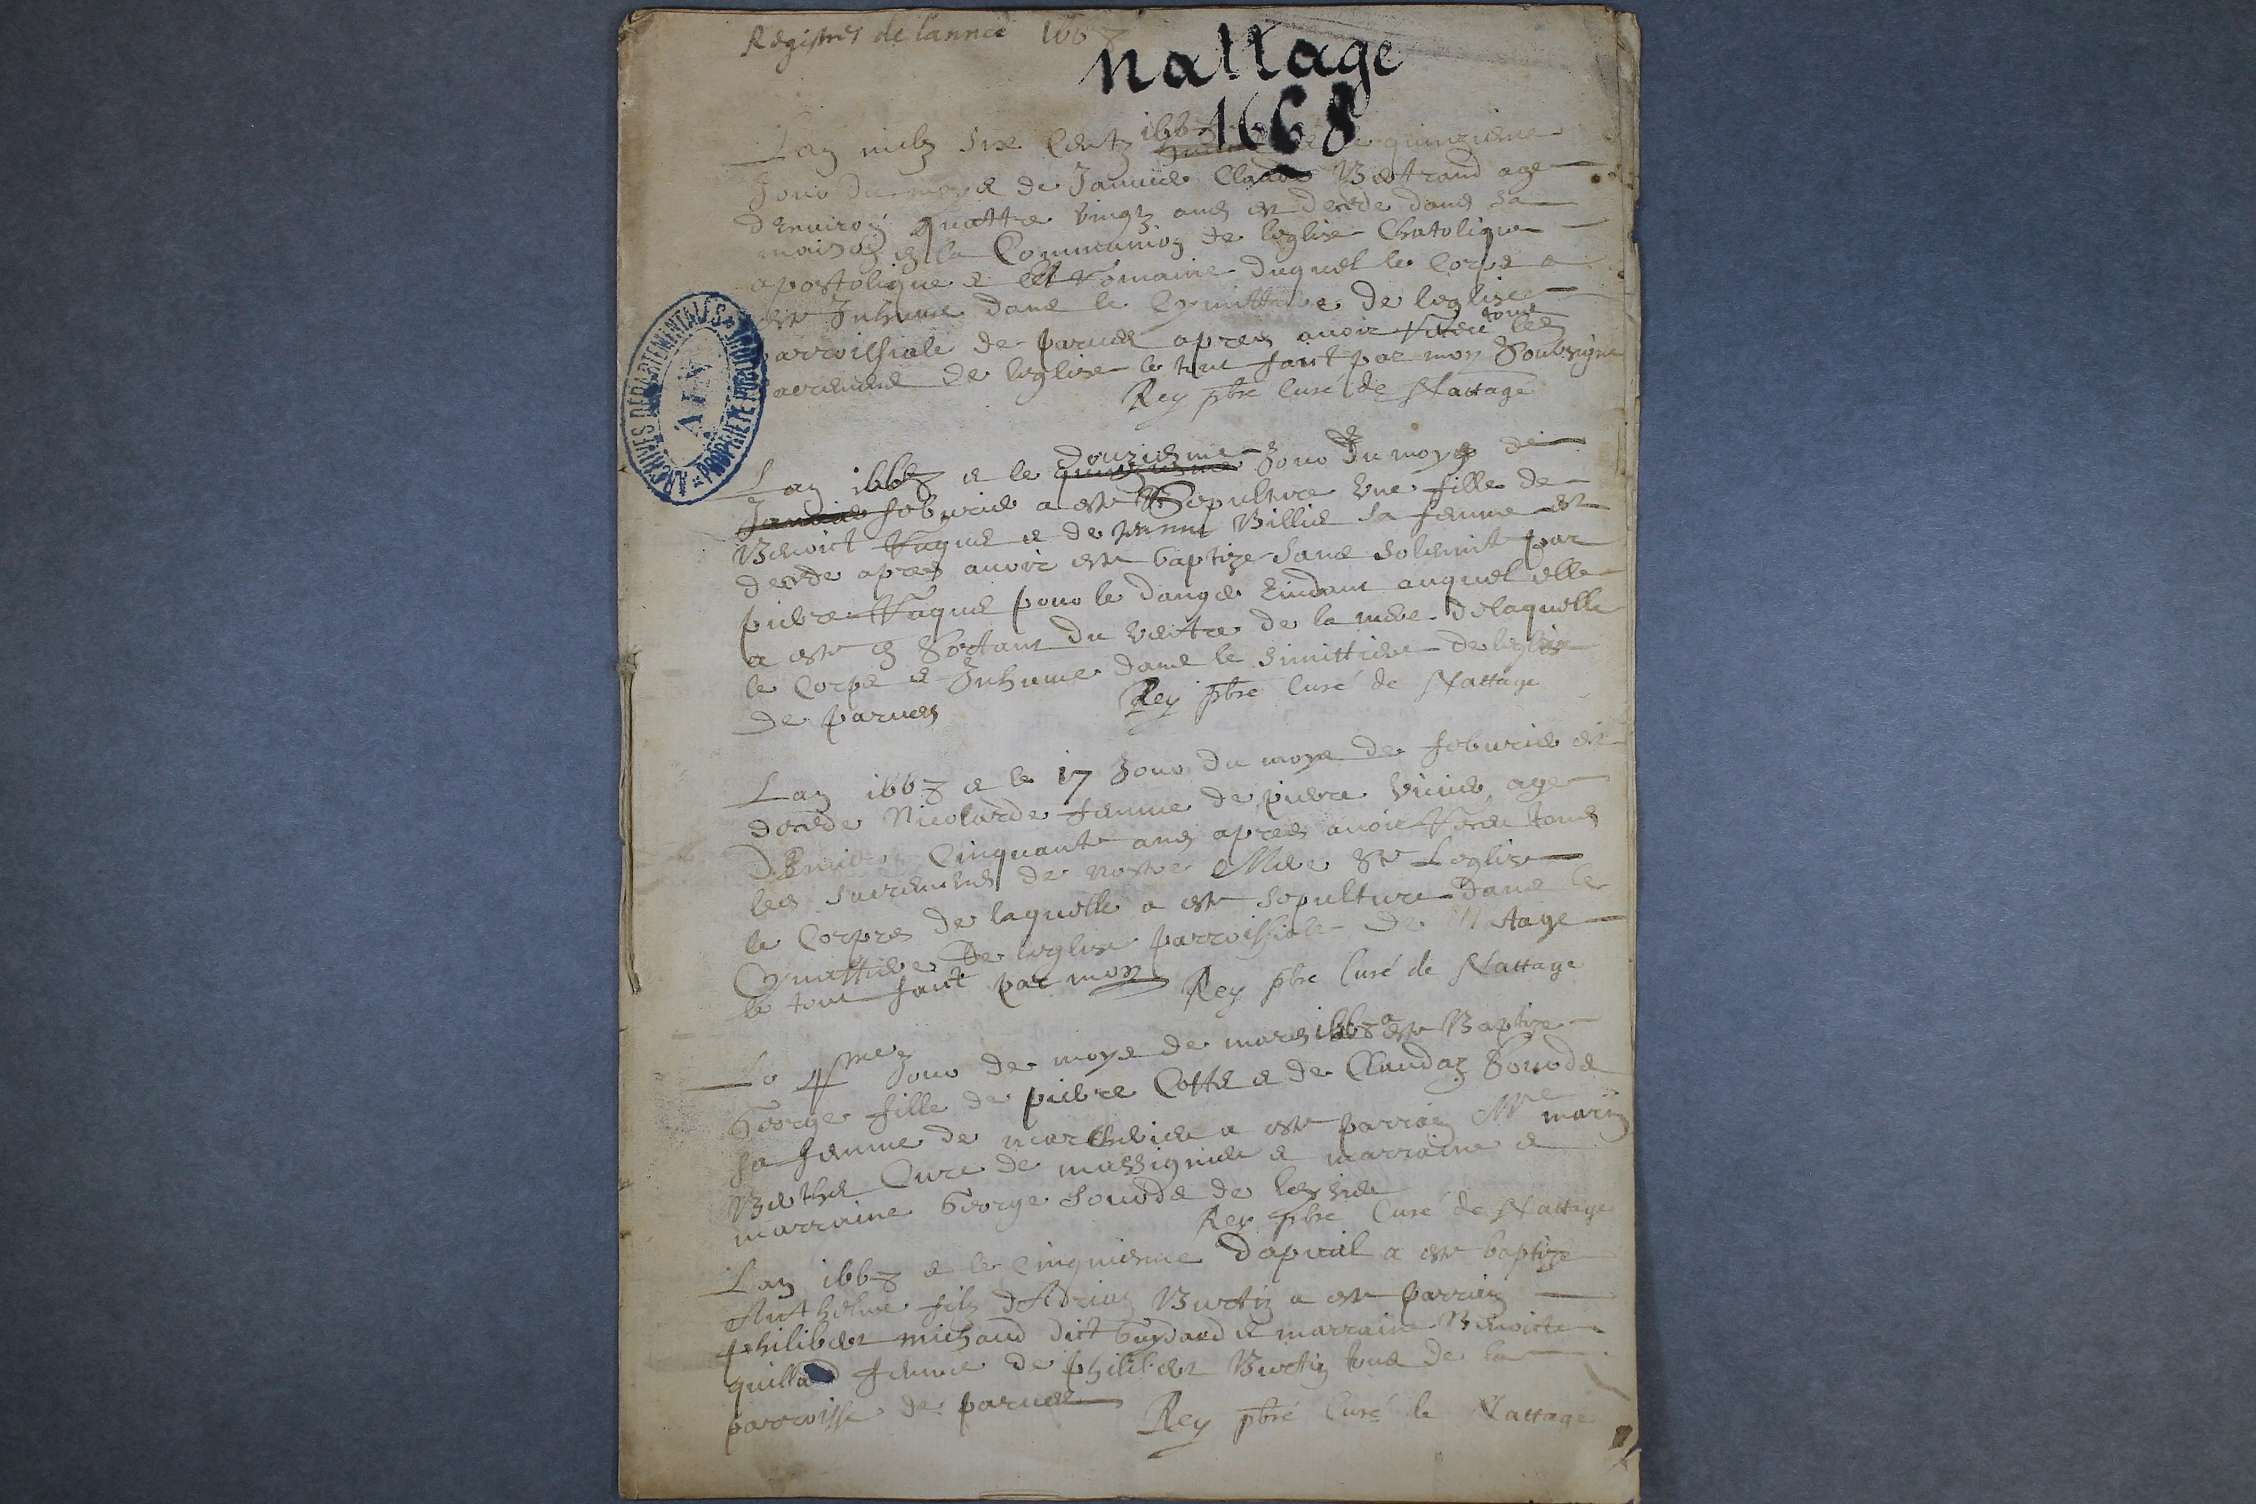 Registres de lannee 1668
Nattage
1668
Lan milz six centz 1668 le quinziesme
Jour du moys de Janvier Claude Bertrand age
denviron quattre vingtz ans est decede dans sa
maison en la Communion de leglise Chatolique
apostolique et Romaine duquel le Corps a
este Inhume dans le Cymittiere de leglise
parroissiale de parves apres avoir Receu tous les
sacremens de leglise le tout faict par moy Soubsigne
Rey pbre Curé de Nattage
Lan 1668 & le douziesme Jour du moys de
feburier a este Sepulture une fille de
Benoict & de Billiet sa femme est
decede apres avoir este baptize sans solemnite par
pierre pour le danger Eindant auquel elle
a este en Sortant du ventre de la mere delaquelle
le Corps e Inhume dans le Simittiere de leglise
de parves
Rey pbre Curé de Nattage
Lan 1668 & le 17 Jour du moys de feburier est
decede Nicolarde femme de pierre age
denviron Cinquante ans apres avoir Receu tous
les sacremens de nostre Mere Ste Leglise
le Corps de laquelle a este sepulture dans le
Cymittiere de leglise parroissiale de Nattage
le tout faict par moy
Rey pbre Curé de Nattage
Le 4me Jour de moys de mars 1668 a este Baptize
George fille de pierre Cottet & de Claudaz
sa femme de a este parrain Mre
Berthet Cure de massignieu & marraine &
marraine George de
Rey pbre Curé de Nattage
Lan 1668 & le Cinquiesme dapvril a este baptize
Anthelme filz dAdrian Burtin a este parrain
philibert michaud dict & marraine Benoicte
femme de philibert Burtin tous de la
parroisse de parves
Rey pbre Curé de Nattage
ARCHIVES DÉPARTEMENTALES
AIN
PROPRIÉTÉ PUBLIQUE